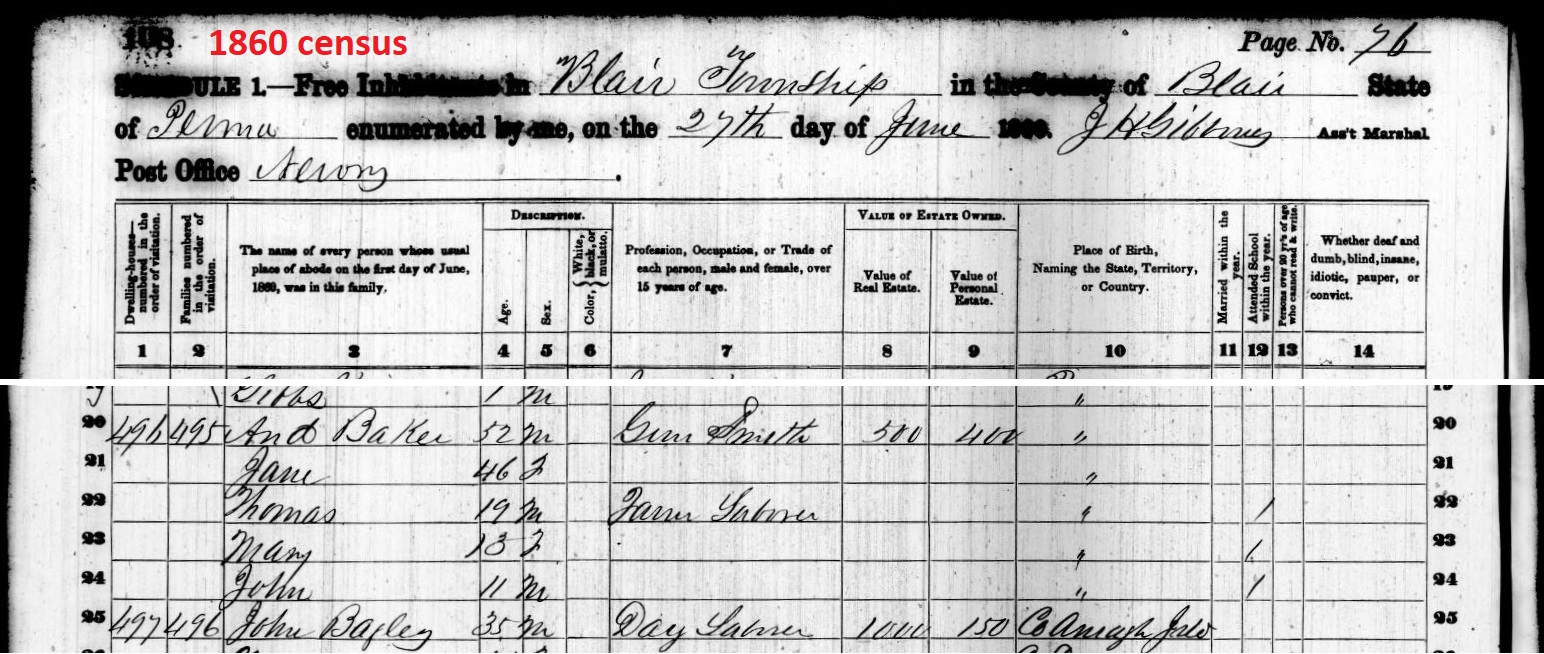 1860 census
Page No. 76
SCHEDULE 1.—Free Inhabitants in Blair Township in the County of Blair State
of Penna enumerated by me, on the 27th day of June 1860. J H Gibboney Ass't Marshal
Post Office Newry.
Dwelling-houses—numbered in the order of visitation.
Families numbered in the order of visitation.
The name of every person whose usual place of abode on the first day of June, 1860, was in this family.
DESCRIPTION.
Age.
Sex.
Color, { White, black, or mulatto.
Profession, Occupation, or Trade of each person, male and female, over 15 years of age.
VALUE OF ESTATE OWNED.
Value of Real Estate.
Value of Personal Estate.
Place of Birth, Naming the State, Territory, or Country.
Married within the year.
Attended School within the year.
Persons over 20 yr's of age who cannot read & write.
Whether deaf and dumb, blind, insane, idiotic, pauper, or convict.
1 2 3 4 5 6 7 8 9 10 11 12 13 14
Gibbs 1 m "
20 496 495 And Baker 52 m Gun Smith 500 400 " 20
21 Jane 46 F " 21
22 Thomas 19 m Farm Laborer " / 22
23 Mary 13 F " / 23
24 John 11 m " / 24
25 497 496 John Bagley 35 m Day Laborer 1000 150 Co 25